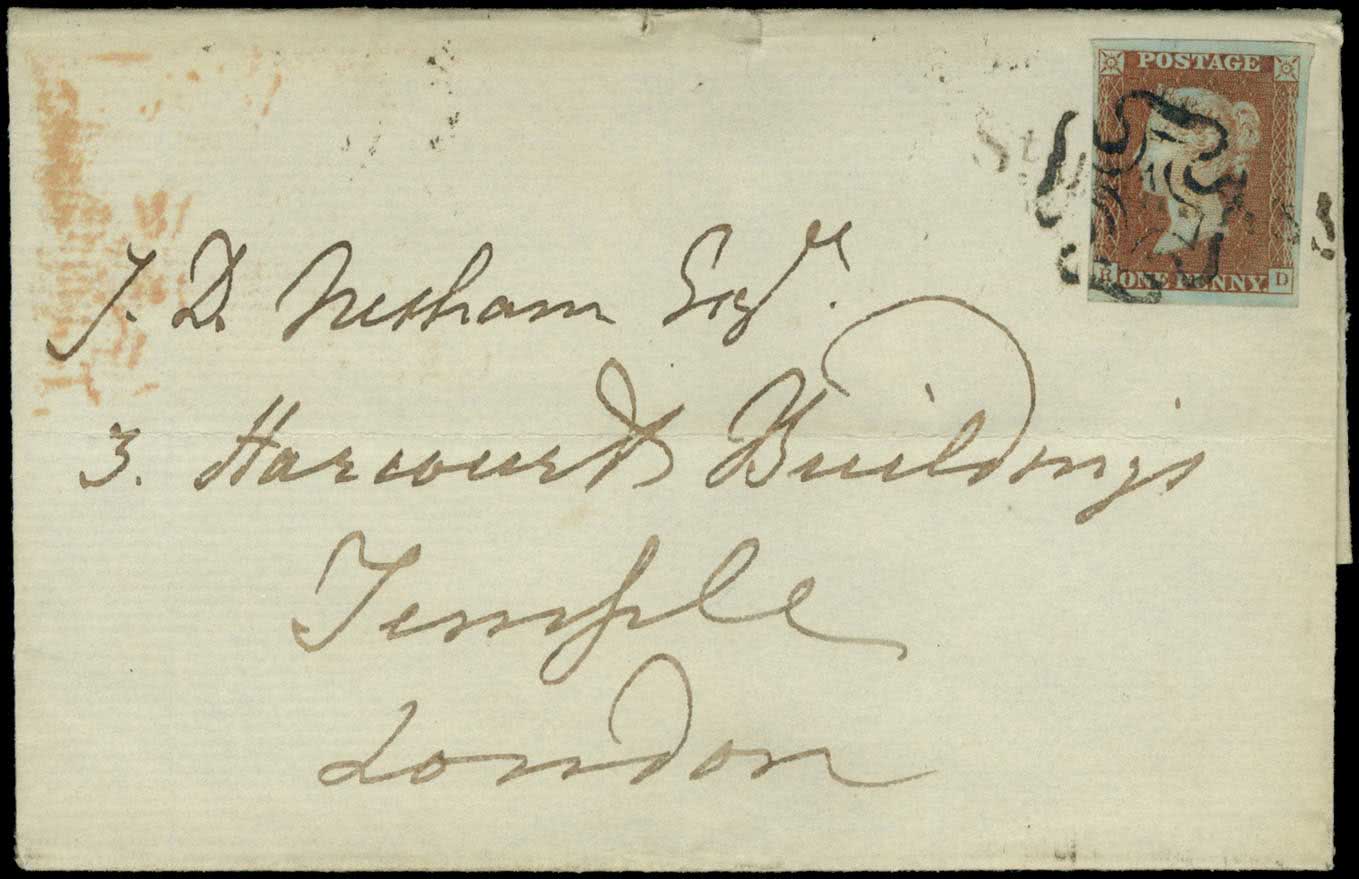 POSTAGE
R ONE PENNY. D
J. D. Nesham Esqre.
3. Harcourt Buildings
Temple
London